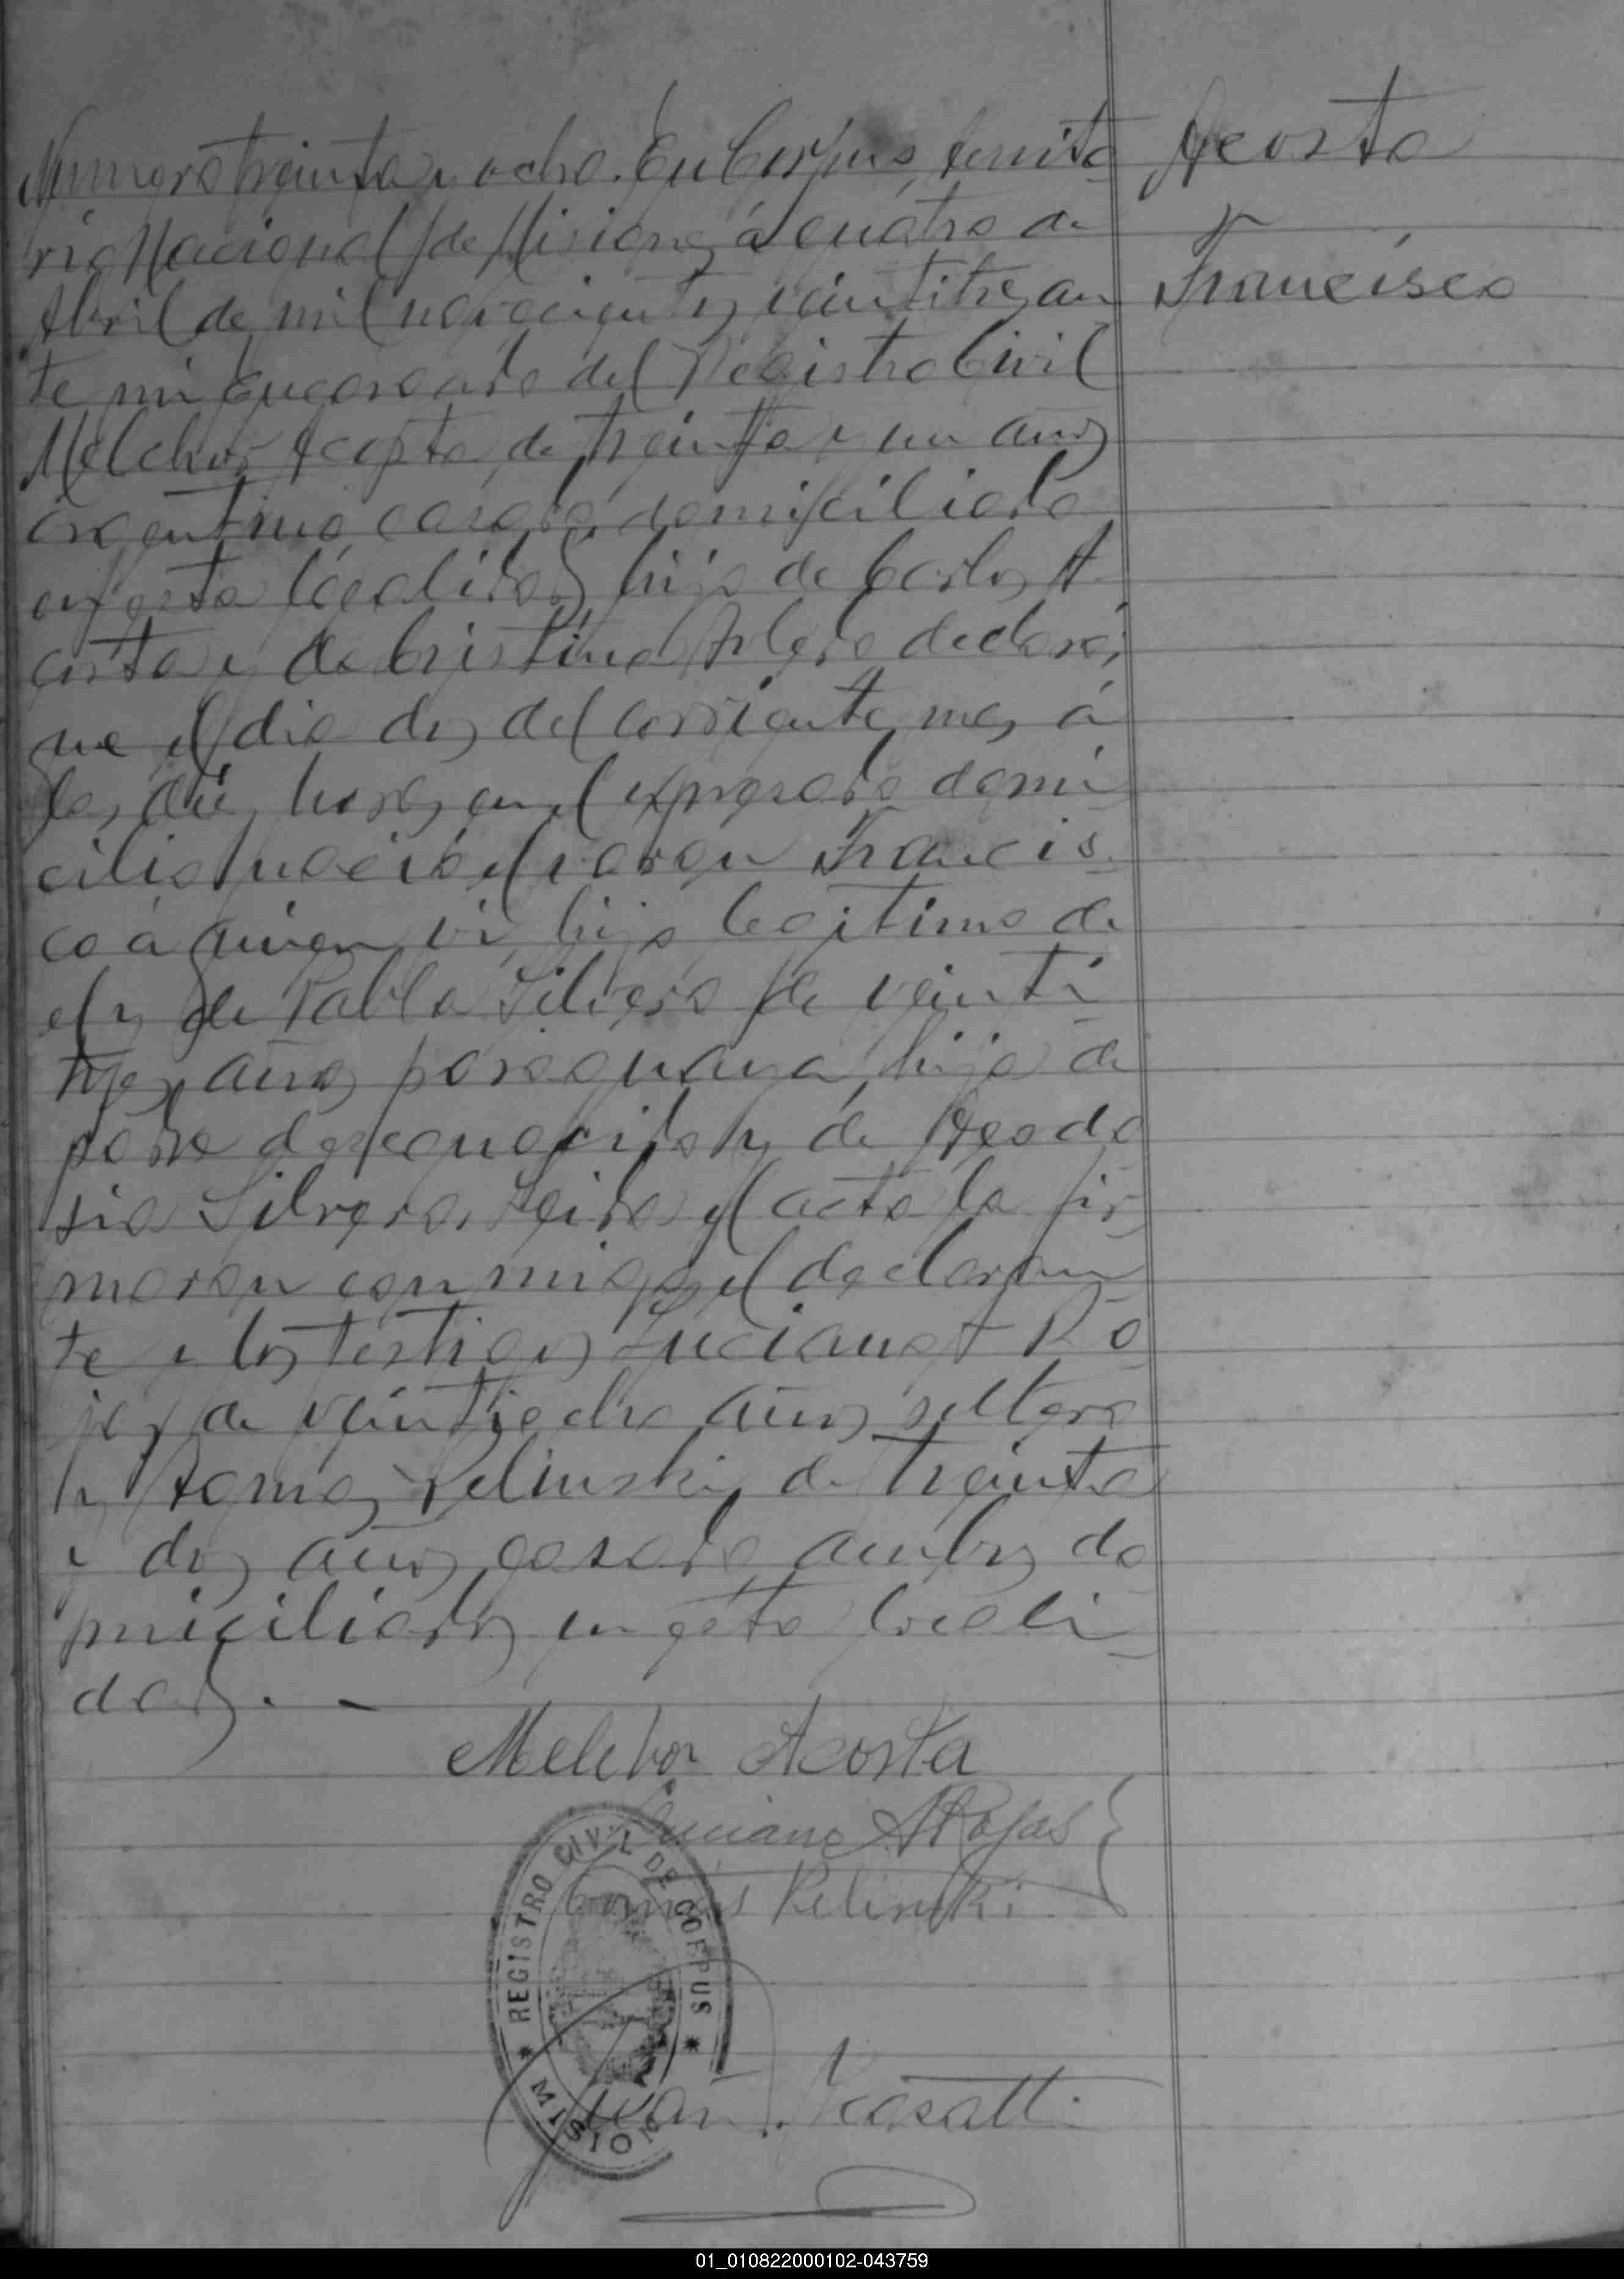 Numero treinta y ocho. En Corpus, territo
rio Nacional de Misiones, á cuatro de
Abril de mil novecientos veintitres, an
te mi Encargado del Registro Civil
Melchor Acosta de treinta y un años
argentino casado, domiciliado
en esta localidad, hijo de Carlos A
costa y de Cristina declaró;
que el dia dos del corriente mes, á
las diez horas, en el expresado domi
cilio nació el varon Francis
co á quien vi, hijo legitimo de
el y de Pabla Silvera de veinti
tres años paraguaya, hija de
padre desconocido y de Teodo
sia Silvera. Leida el acta la fir
maron conmigo, el declaran
te y los testigos Luciano A Ro
jas de veintiocho años, soltero
y Tomas Pelinski, de treinta
y dos años, casado, ambos do
miciliados en esta locali
dad. —
Melchor Acosta
Luciano A Rojas
Tomás Pelinski
REGISTRO CIVIL DE CORPUS
* MISION *
Juan
Acosta
Francisco
01_010822000102-043759